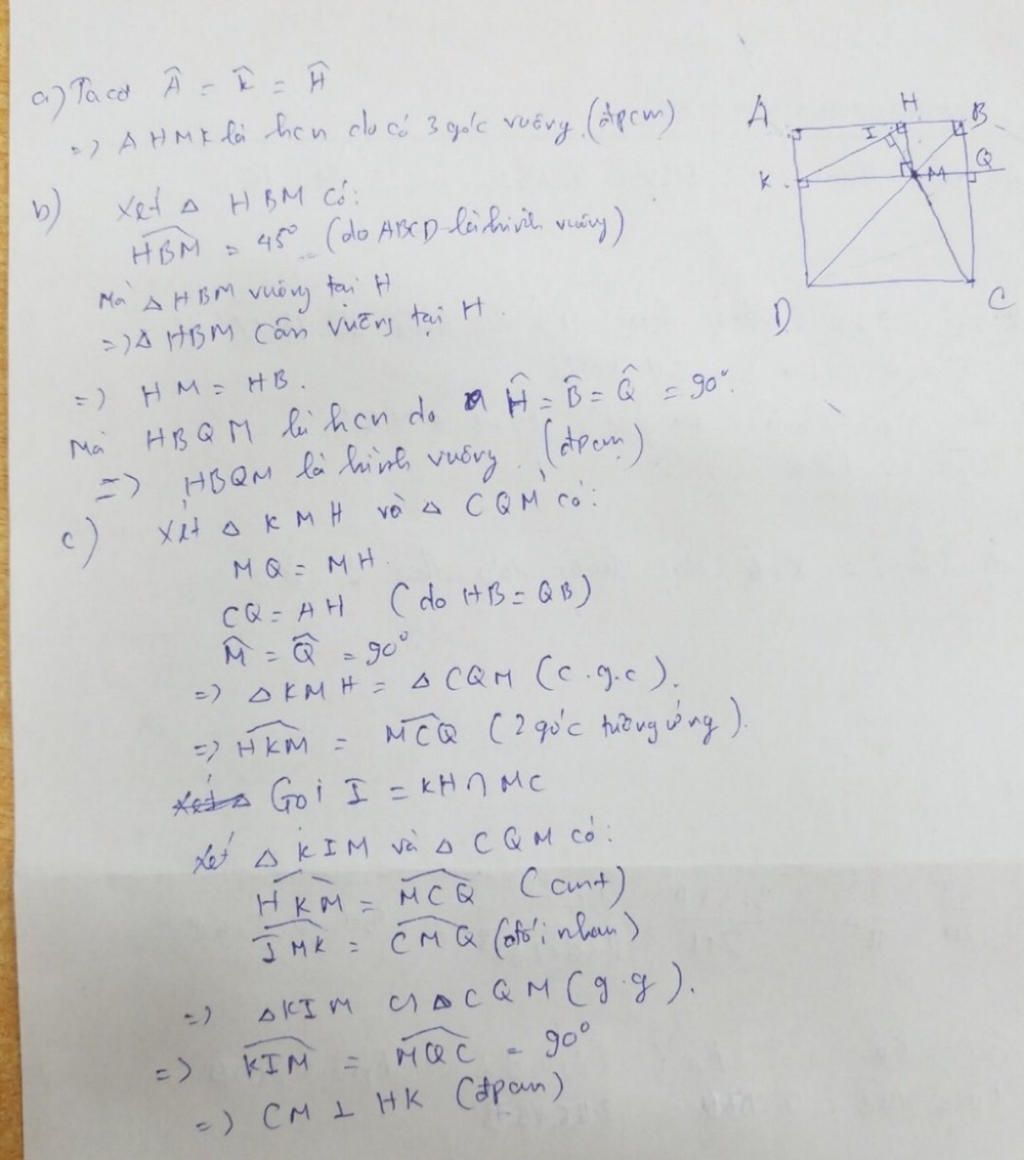 a) Ta có Â = K̂ = Ĥ
=> AHMK là hcn do có 3 góc vuông (đpcm)
b) Xét Δ HBM có:
HBM = 45° (do ABCD là hình vuông)
Mà Δ HBM vuông tại H
=> Δ HBM cân vuông tại H.
=> HM = HB.
Mà HBQM là hcn do Ĥ = B̂ = Q̂ = 90°.
=> HBQM là hình vuông (đpcm)
c) Xét Δ KMH và Δ CQM có:
MQ = MH.
CQ = AH (do HB = QB)
M̂ = Q̂ = 90°
=> Δ KMH = Δ CQM (c.g.c).
=> HKM = MCQ (2 góc tương ứng).
Gọi I = KH ∩ MC
Xét Δ KIM và Δ CQM có:
HKM = MCQ (cmt)
IMK = CMQ (đối nhau)
=> Δ KIM ∽ Δ CQM (g.g).
=> KIM = MQC = 90°
=> CM ⊥ HK (đpcm)
A H B
I
K M Q
D C